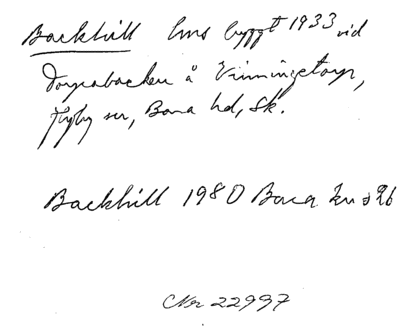 Backhill hus byggt 1933 vid
Torpabacken å Vinningetorp,
Hyby sn, Bara hd, Sk.
Backhill 1980 Bara kn s 26
CNr 22997